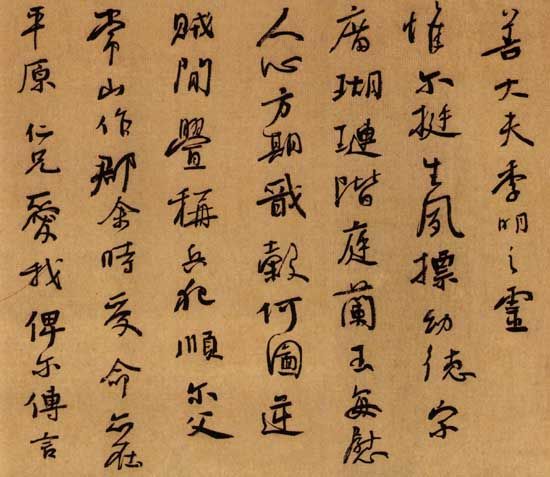 善大夫季明之靈
惟尔挺生夙摽幼德宗
庿瑚璉階庭蘭玉每慰
人心方期戩穀何圖逆
賊閒舋稱兵犯順尔父
常山作郡余時受命亦在
平原仁兄愛我俾尔傳言